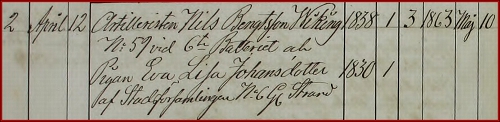 2 April 12 Artilleristen Nils Bengtson 1838 1 3 1863 Maj 10
No 59 vid 6te Batteriet och
Pigan Eva Lisa Johansdotter 1830 1
af Stadsförsamlingen No 6 Strand